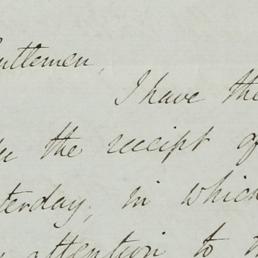 Gentlemen,
I have the
the receipt of
yesterday, in which
attention to the